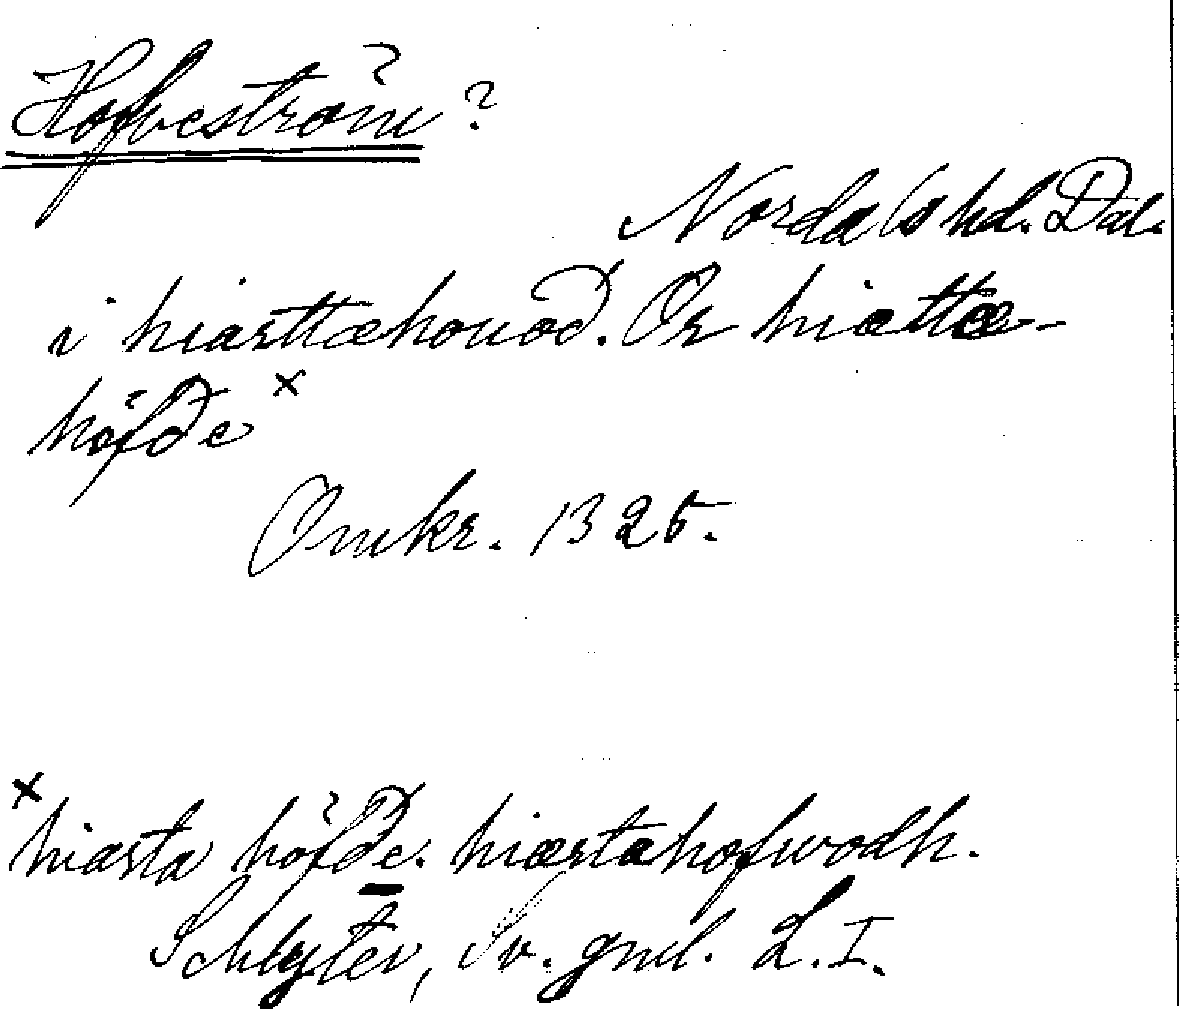 Hofbeström?
Nordals hd. Dal.
i hiarttæhouoð. Or hiættæ-
höfðe x
Omkr. 1325.
x
hiarta höfðe. hiærtahofwodh.
Schlyter, Sv. gml. L. I.